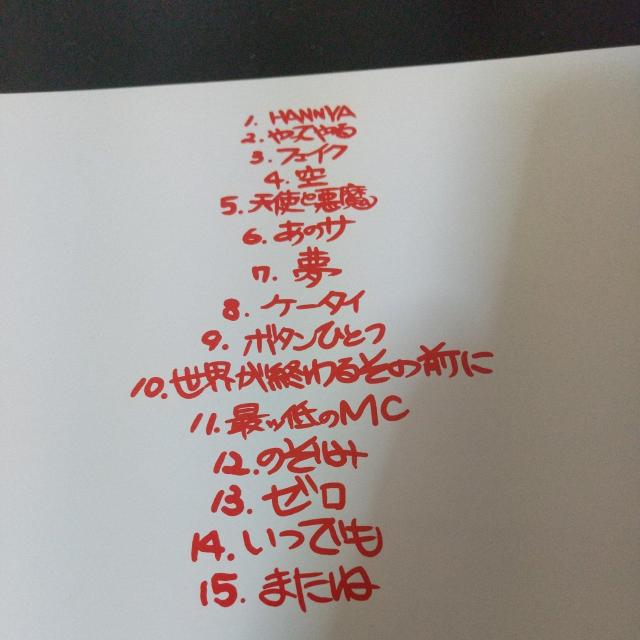 1. HANNYA
2. やってやる
3. フェイク
4. 空
5. 天使と悪魔
6. あのサ
7. 夢
8. ケータイ
9. ボタンひとつ
10. 世界が終わるその前に
11. 最ッ低のMC
12. のぞみ
13. ゼロ
14. いつでも
15. またね